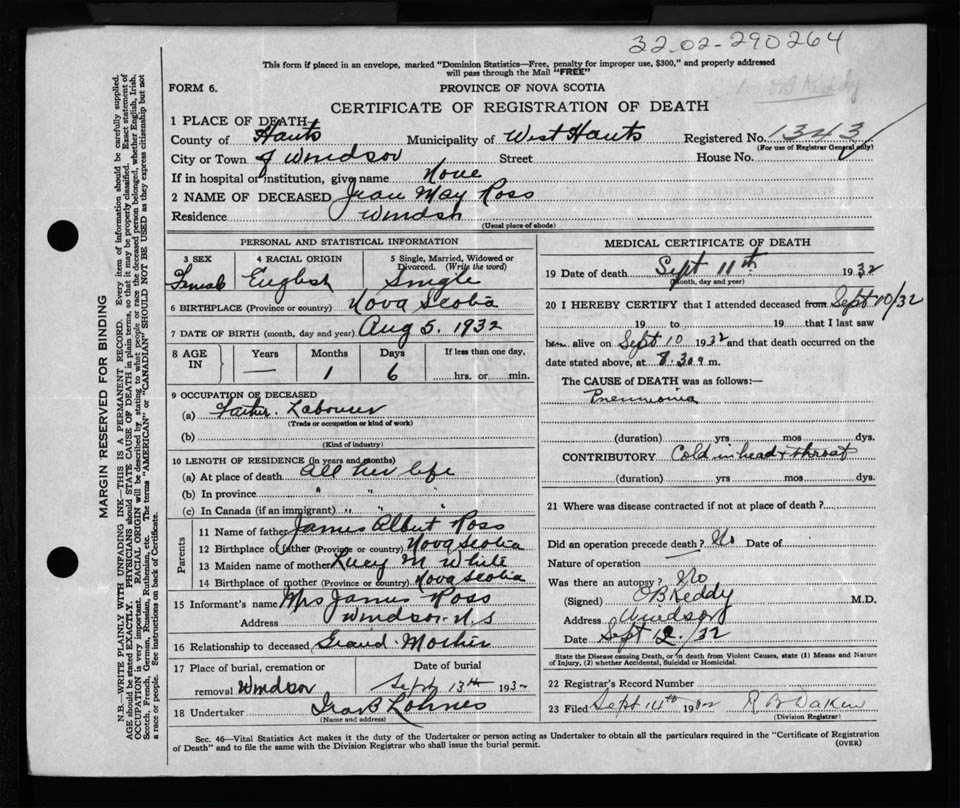 32.02-290264
This form if placed in an envelope, marked "Dominion Statistics—Free, penalty for improper use, $300," and properly addressed
will pass through the Mail "FREE"
FORM 6.
PROVINCE OF NOVA SCOTIA
Keddy
CERTIFICATE OF REGISTRATION OF DEATH
1 PLACE OF DEATH
County of Hants Municipality of West Hants Registered No. 1343
(For use of Registrar General only)
City or Town of Windsor Street House No.
If in hospital or institution, give name None
2 NAME OF DECEASED Jean May Ross
Residence Windsor
(Usual place of abode)
PERSONAL AND STATISTICAL INFORMATION
3 SEX 4 RACIAL ORIGIN 5 Single, Married, Widowed or
Divorced. (Write the word)
Female English Single
6 BIRTHPLACE (Province or country) Nova Scotia
7 DATE OF BIRTH (month, day and year) Aug 5. 1932
8 AGE IN Years Months Days If less than one day,
— 1 6 hrs. or min.
9 OCCUPATION OF DECEASED
(a) Father. Labourer
(Trade or occupation or kind of work)
(b)
(Kind of industry)
10 LENGTH OF RESIDENCE (in years and months)
(a) At place of death all her life
(b) In province " "
(c) In Canada (if an immigrant) " " "
Parents
11 Name of father James Albert Ross
12 Birthplace of father (Province or country) Nova Scotia
13 Maiden name of mother Lucy M White
14 Birthplace of mother (Province or country) Nova Scotia
15 Informant's name Mrs James Ross
Address Windsor. N.S
16 Relationship to deceased Grand Mother
17 Place of burial, cremation or Date of burial
removal Windsor Sept 13th 1932
18 Undertaker Lohnes
(Name and address)
MEDICAL CERTIFICATE OF DEATH
19 Date of death Sept 11th 1932
(Month, day and year)
20 I HEREBY CERTIFY that I attended deceased from Sept 10/32
19 to 19 that I last saw
h alive on Sept 10 1932 and that death occurred on the
date stated above, at 8.30 a m.
The CAUSE of DEATH was as follows:—
Pneumonia
(duration) yrs mos dys.
CONTRIBUTORY Cold in head & throat
(duration) yrs mos dys.
21 Where was disease contracted if not at place of death?
Did an operation precede death? No Date of
Nature of operation
Was there an autopsy? No
(Signed) O B Keddy M.D.
Address Windsor
Date Sept 12./32
State the Disease causing Death, or in death from Violent Causes, state (1) Means and Nature
of Injury, (2) whether Accidental, Suicidal or Homicidal.
22 Registrar's Record Number
23 Filed Sept 14th 1932 R B Dakin
(Division Registrar)
Sec. 46—Vital Statistics Act makes it the duty of the Undertaker or person acting as Undertaker to obtain all the particulars required in the "Certificate of Registration
of Death" and to file the same with the Division Registrar who shall issue the burial permit.
(OVER)
MARGIN RESERVED FOR BINDING
N.B.—WRITE PLAINLY WITH UNFADING INK—THIS IS A PERMANENT RECORD. Every item of information should be carefully supplied.
AGE should be stated EXACTLY. PHYSICIANS should STATE CAUSE OF DEATH in plain terms, so that it may be properly classified. Exact statement of
OCCUPATION is very important. RACIAL ORIGIN will be described by stating to what people or race the deceased person belonged, whether English, Irish,
Scotch, French, German, Russian, Ruthenian, etc. The terms "AMERICAN" or "CANADIAN" SHOULD NOT BE USED as they express citizenship but not
a race or people. See instructions on back of Certificate.